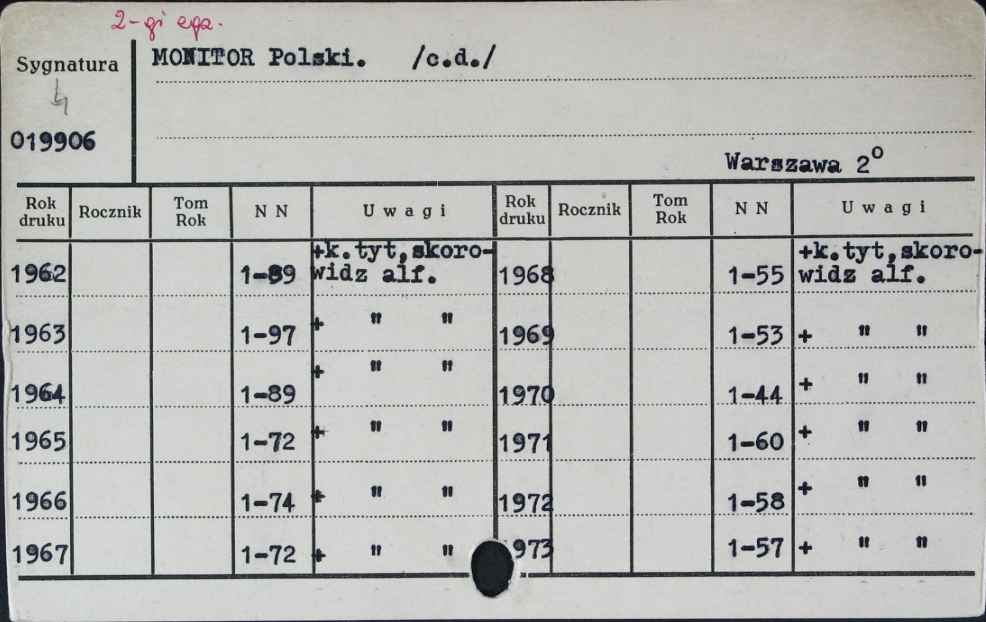 2-gi egz.
Sygnatura
MONITOR Polski. /c.d./
019906
Warszawa 2°
Rok druku Rocznik Tom Rok N N Uwagi Rok druku Rocznik Tom Rok N N Uwagi
1962 1-89 +k.tyt,skoro-widz alf. 1968 1-55 +k.tyt,skoro-widz alf.
1963 1-97 + " " 1969 1-53 + " "
1964 1-89 + " " 1970 1-44 + " "
1965 1-72 + " " 1971 1-60 + " "
1966 1-74 + " " 1972 1-58 + " "
1967 1-72 + " " 973 1-57 + " "